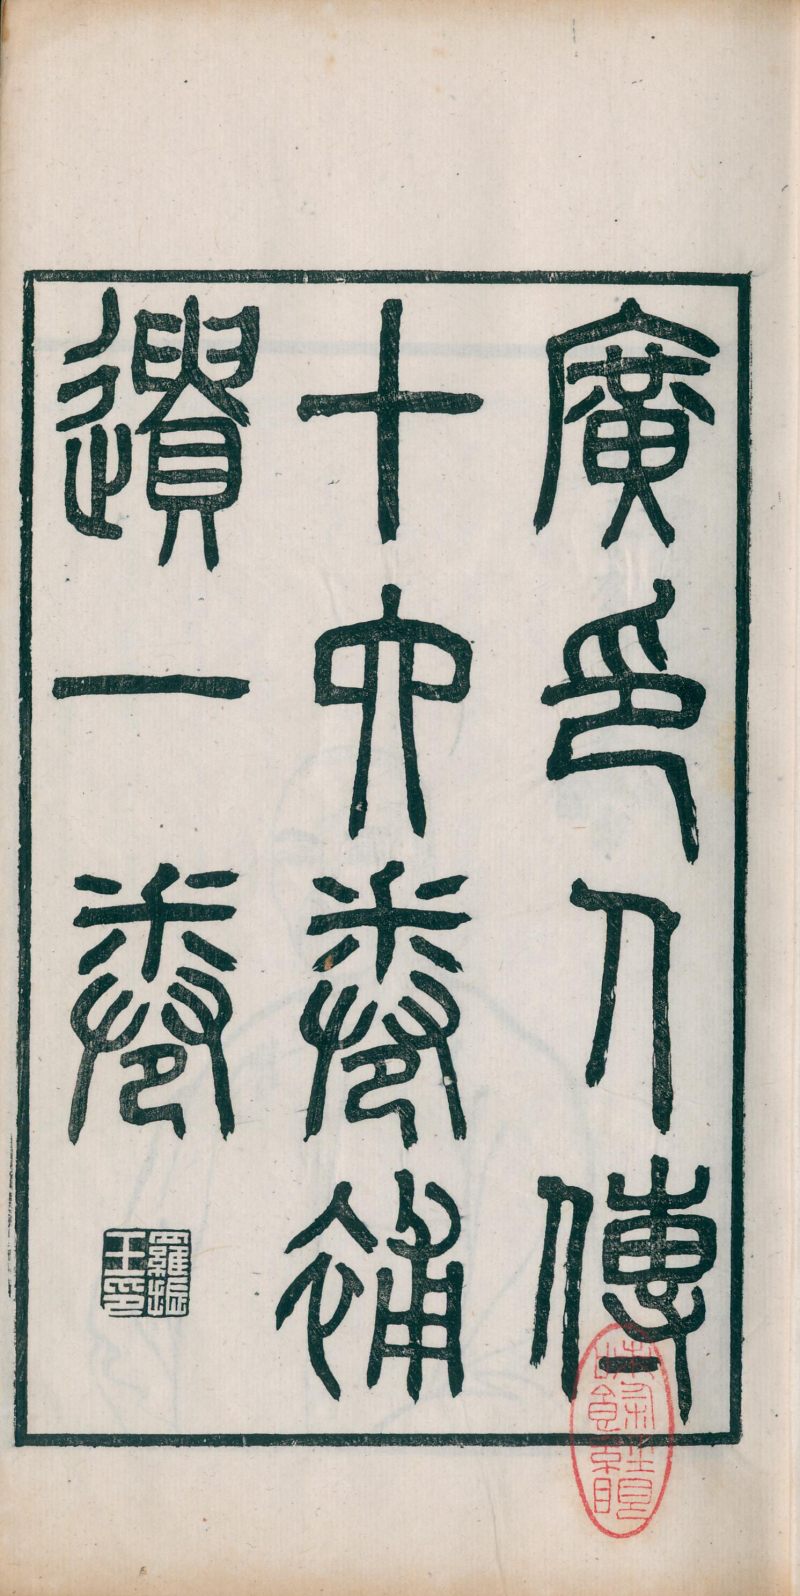 廣印人傳
十六卷補
遺一卷
羅振
玉印